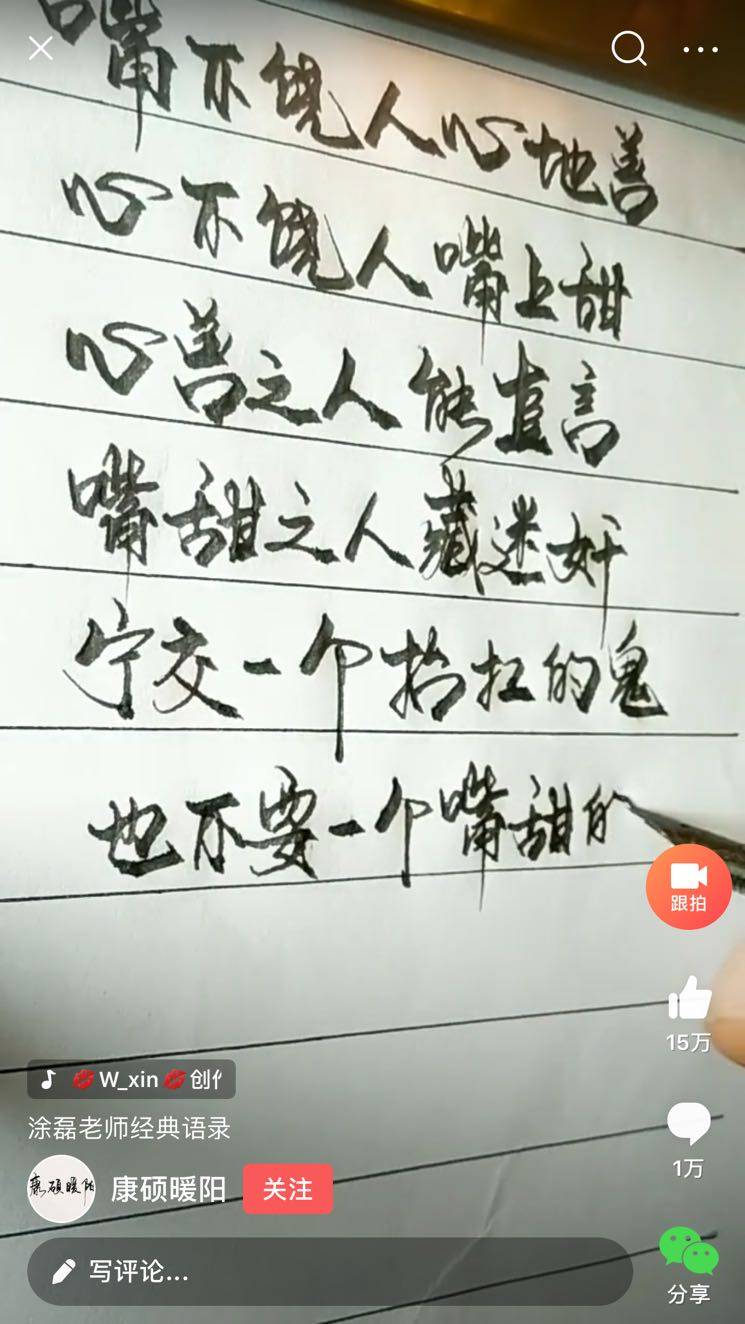 嘴不饶人心地善
心不饶人嘴上甜
心善之人能直言
嘴甜之人藏迷奸
宁交一个抬扛的鬼
也不要一个嘴甜的
跟拍
15万
W_xin 创作
涂磊老师经典语录
1万
康硕暖阳
康硕暖阳
关注
写评论...
分享